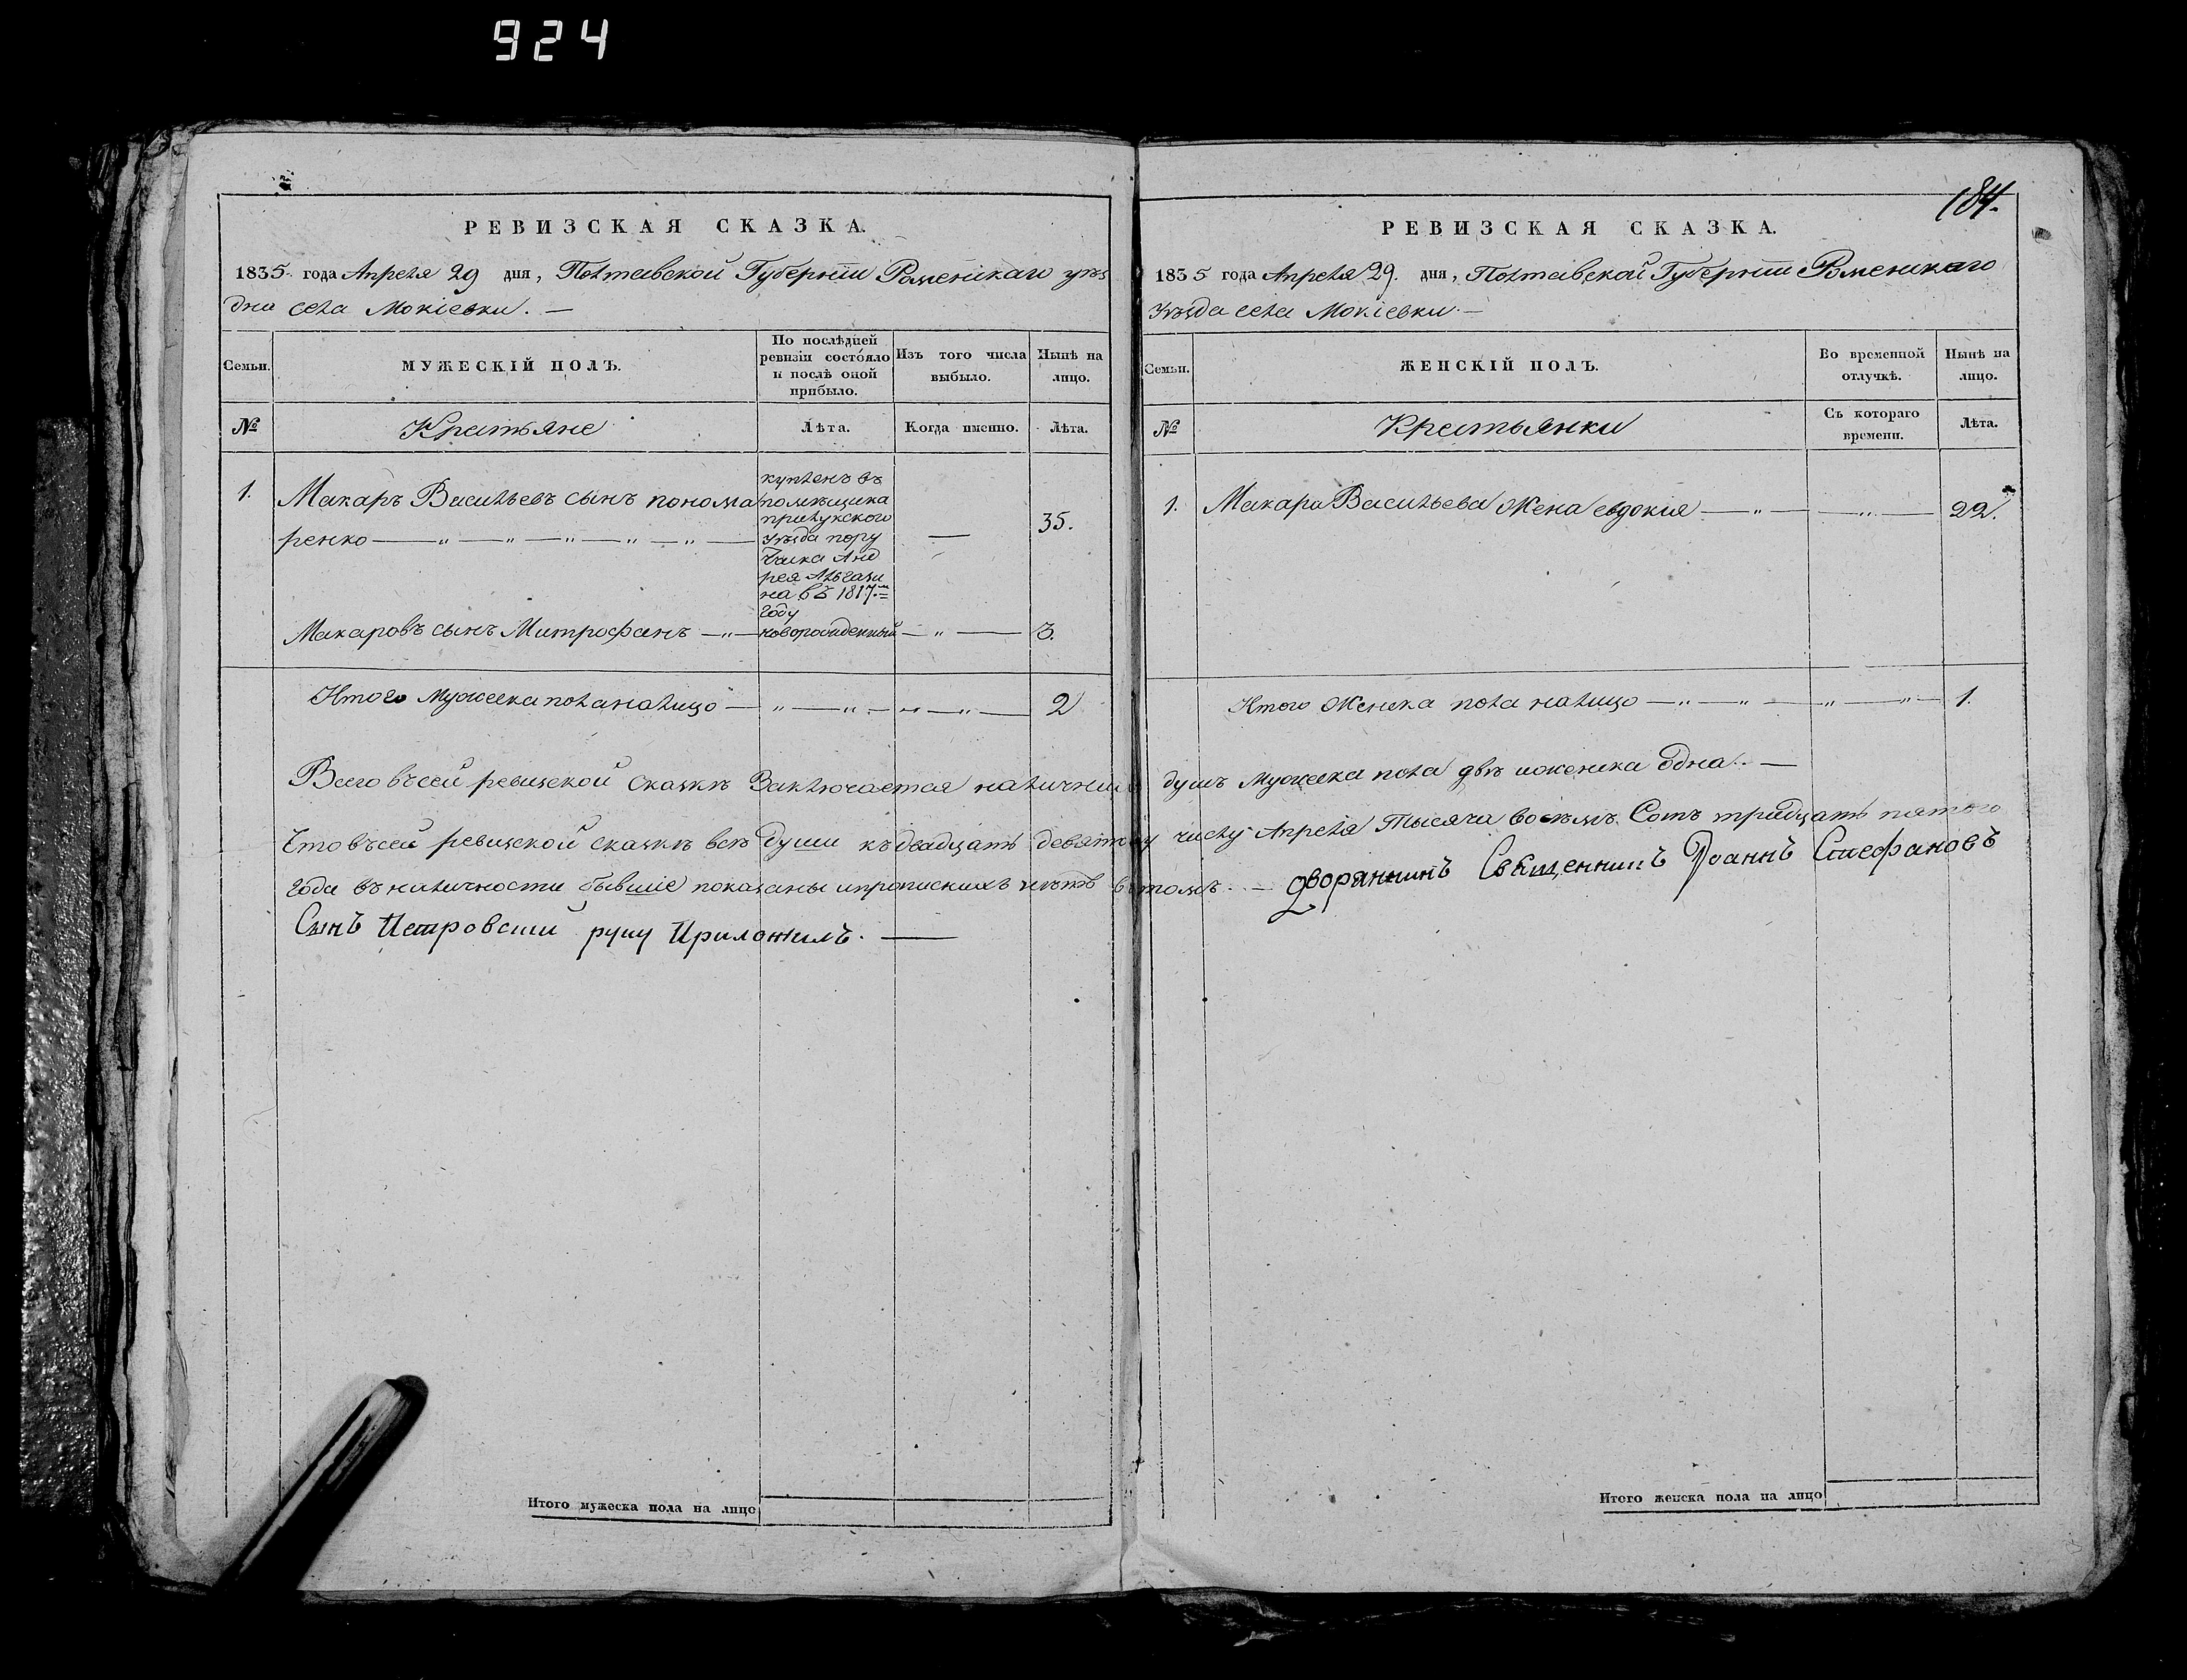 924
184.
РЕВИЗСКАЯ СКАЗКА.
1835 года Апреля 29 дня, Полтавской Губернiи Роменскаго уѣз
дна села Мокiевки. —
Семьи.
МУЖЕСКІЙ ПОЛЪ.
По послѣдней ревизіи состояло и послѣ оной прибыло.
Изъ того числа выбыло.
Нынѣ на лицо.
№
Крестьяне
Лѣта.
Когда именно.
Лѣта.
1.
Макаръ Васильевъ сынъ понома
ренко
купленъ въ
помѣщика
прилукского
уѣзда пору
чика Анд
рея
на въ 1817-м
году
—
35.
Макаровъ сынъ Митрофанъ — новорожденный — 3.
Итого мужеска пола налицо — 2
РЕВИЗСКАЯ СКАЗКА.
1835 года Апреля 29. дня, Полтавской Губернiи Роменскаго
уѣзда села Мокiевки. —
Семьи.
ЖЕНСКІЙ ПОЛЪ.
Во временной отлучкѣ.
Нынѣ на лицо.
№
Крестьянки
Съ котораго времени.
Лѣта.
1. Макара Васильева жена евдокия — 22.
Итого женска пола налицо — 1.
Всего въсей ревизской сказкѣ Заключается наличныхъ душъ мужеска пола двѣ иженска Одна. —
Что въсей ревизской сказкѣ всѣ души къ двадцать девятому числу Апреля Тысяча восѣмъ Сотъ тридцать пятого
года въ наличности бывшiе показаны ипрописныхъ нѣтъ втомъ. — дворянинъ Священникъ Iоаннъ Стефановъ
Сынъ Петровскiй руку Приложилъ. —
Итого мужеска пола на лицо
Итого женска пола на лицо